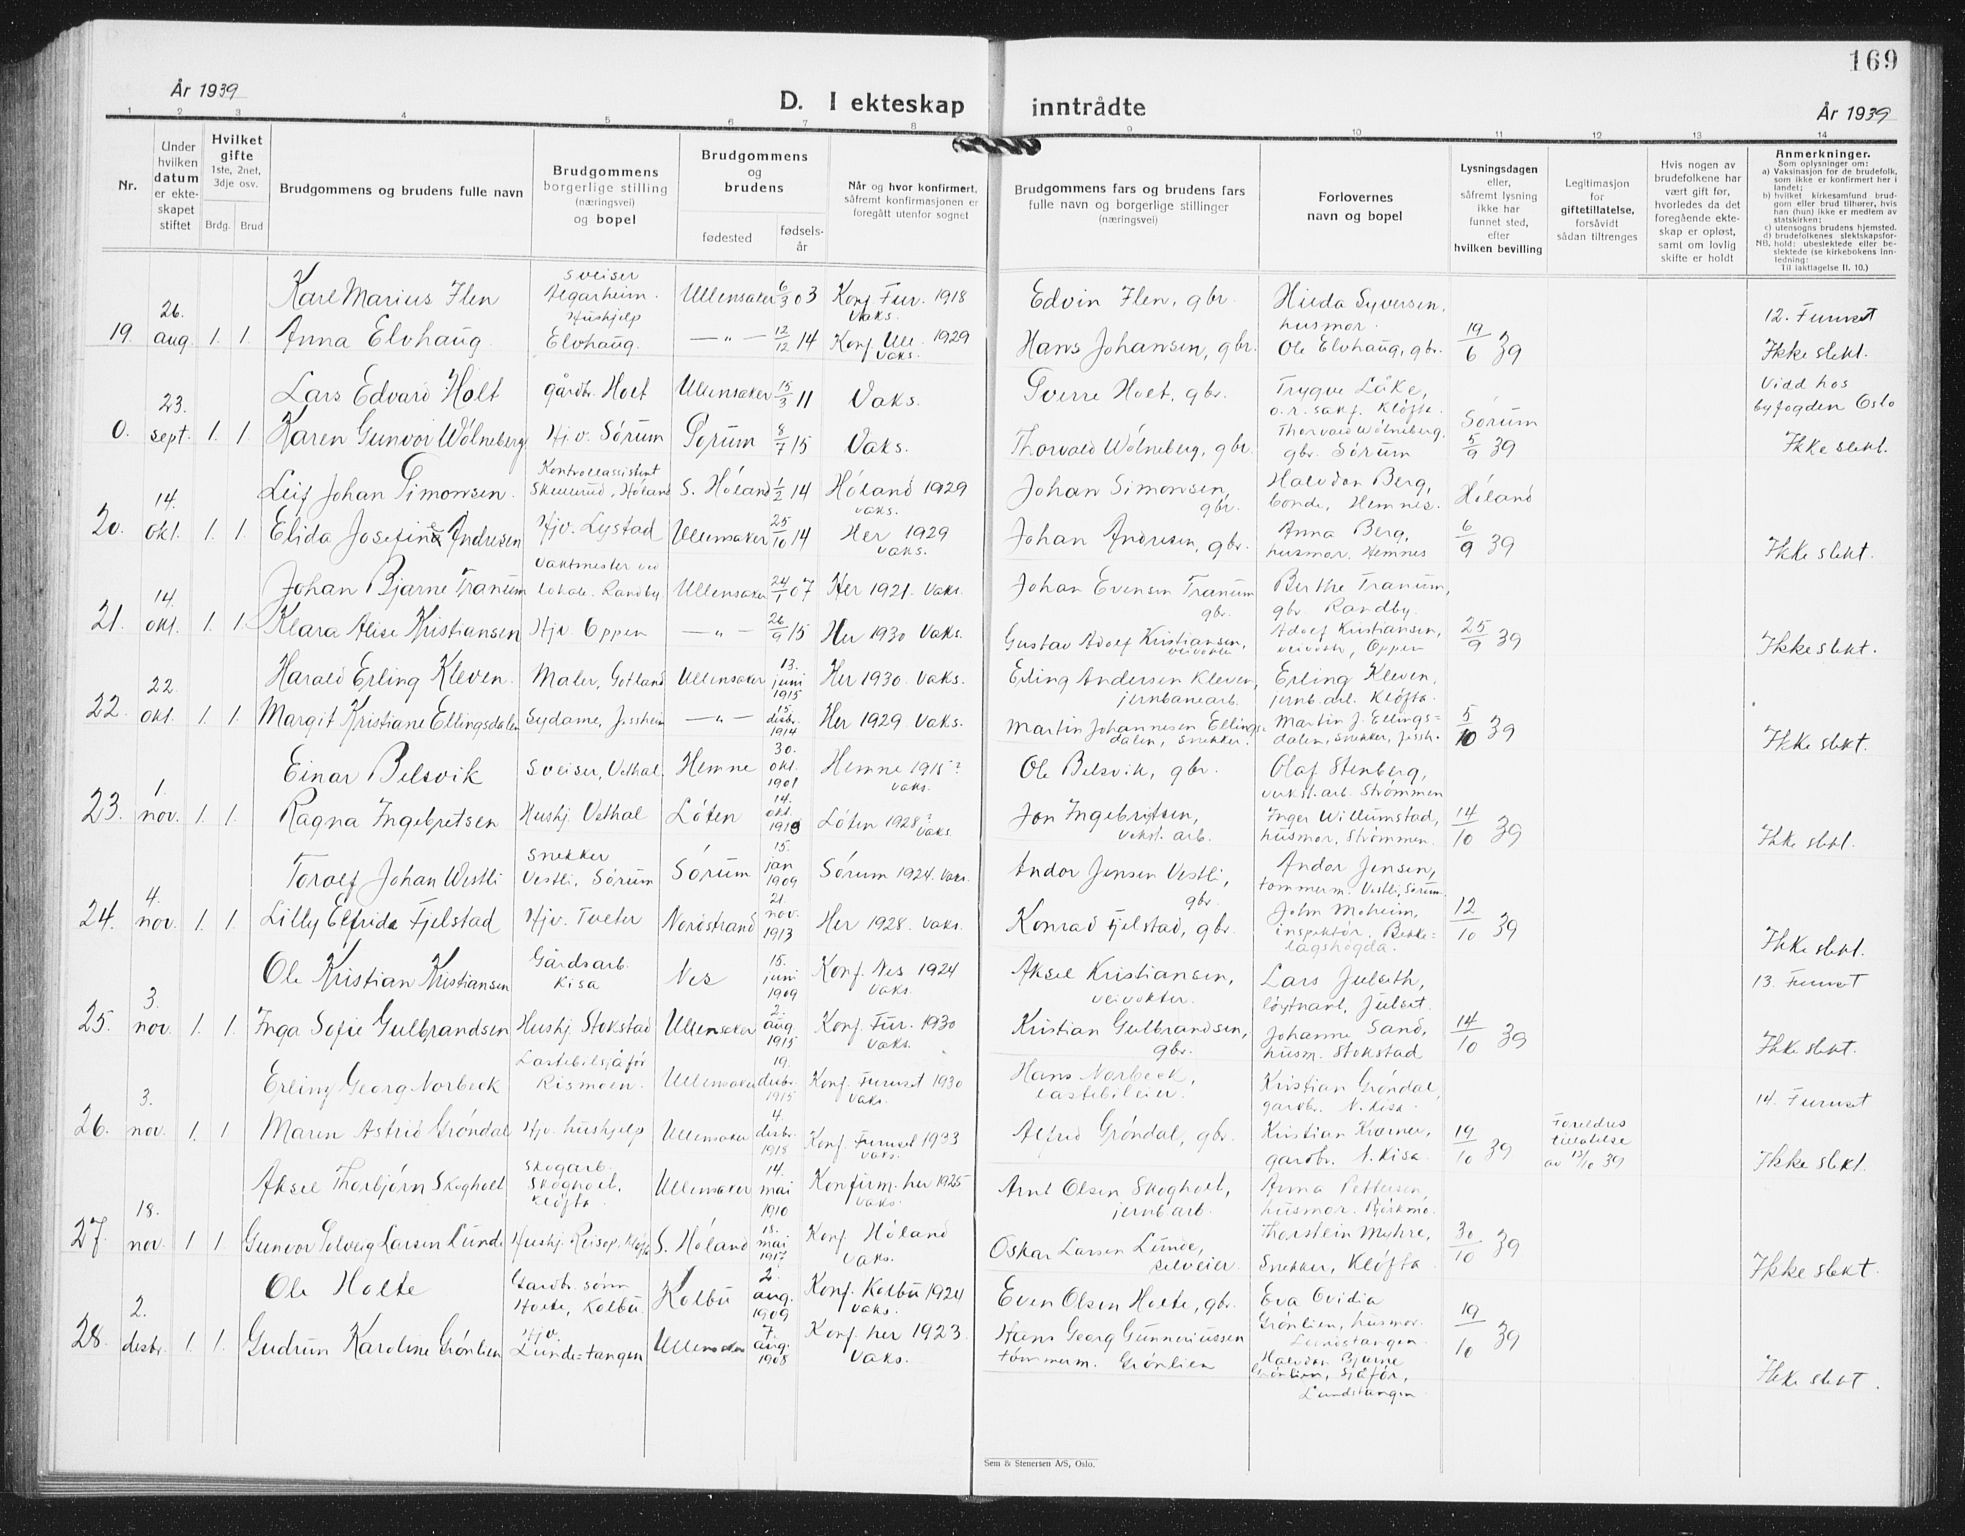 169
År 1939
D. I ekteskap inntrådte
År 1939
1 2 3 4 5 6 7 8 9 10 11 12 13 14
Nr.
Under hvilken datum er ekteskapet stiftet
Hvilket gifte
1ste, 2net, 3dje osv.
Brdg. Brud
Brudgommens og brudens fulle navn
Brudgommens borgerlige stilling (næringsvei) og bopel
Brudgommens og brudens
fødested
fødselsår
Når og hvor konfirmert, såfremt konfirmasjonen er foregått utenfor sognet
Brudgommens fars og brudens fars fulle navn og borgerlige stillinger (næringsvei)
Forlovernes navn og bopel
Lysningsdagen eller, såfremt lysning ikke har funnet sted, efter hvilken bevilling
Legitimasjon for giftetillatelse, forsåvidt sådan tiltrenges
Hvis nogen av brudefolkene har vært gift før, hvorledes da det foregående ekteskap er opløst, samt om lovlig skifte er holdt
Anmerkninger.
Som oplysninger om:
a) Vaksinasjon for de brudefolk, som ikke er konfirmert her i landet;
b) hvilket kirkesamfund brudgom eller brud tilhører, hvis han (hun) ikke er medlem av statskirken;
c) utensogns brudens hjemsted.
d) brudefolkenes slektskapsforhold: ubeslektede eller beslektede (se kirkebokens innledning:
NB. Til iakttagelse II. 10.)
19. 26. aug. 1. 1.
Karl Marius Ilen sveiser Algarheim. Ullensaker 6/3 03 Konf Fur. 1918 Vaks. Edvin Ilen, gbr. Hilda Syversen, husmor. 12. Furuset
Anna Elvhaug. Hushjelp Elvhaug. —"— 12/12 14 Konf. Ull. 1929 Vaks. Hans Johansen, gbr. Ole Elvhaug, gbr. 19/6 39 Ikke slekt.
0. 23. sept. 1. 1.
Lars Edvard Holt gårdbr. Holt Ullensaker 15/3 11 Vaks. Sverre Holt, gbr. Trygve Låke, o.r. sakf. Kløfta. Vidd hos byfogden Oslo
Karen Gunvor Wølneberg Hjv. Sørum Sørum 8/7 15 Vaks. Thorvald Wølneberg, gbr. Thorvald Wølneberg, gbr. Sørum Sørum 5/9 39 Ikke slekt.
20. 14. okt. 1. 1.
Leif Johan Simonsen. Kontrollassistent Skullerud, Høland S. Høland 1/2 14 Høland 1929 vaks. Johan Simonsen, gbr. Halvdan Berg, bonde, Hemnes. Høland
Elida Josefine Andresen Hjv. Lystad Ullensaker 25/10 14 Her 1929 vaks. Johan Andresen, gbr. Anna Berg, husmor, Hemnes 6/9 39 Ikke slekt.
21. 14. okt. 1. 1.
Johan Bjarne Tranum vaktmester ved lokale. Randby Ullensaker 24/1 07 Her 1921. vaks. Johan Evensen Tranum gbr. Berthe Tranum, gbr. Randby.
Klara Alise Kristiansen Hjv. Oppen —"— 26/9 15 Her 1930 Vaks. Gustav Adolf Kristiansen, veivokter Adolf Kristiansen, veivokt., Oppen 25/9 39 Ikke slekt.
22. 22. okt. 1. 1.
Harald Erling Kleven. Maler, Gotland Ullensaker 13. juni 1915 Her 1930. vaks. Erling Andersen Kleven, jernbanearb. Erling Kleven, jernb.arb. Kløfta.
Margit Kristiane Ellingsdalen Sydame, Jessheim —"— 15. desbr. 1914 Her 1929 vaks. Martin Johannesen Ellingsdalen, snekker. Martin J. Ellingsdalen, Snekker, Jessh. 5/10 39 Ikke slekt.
23. 1. nov. 1. 1.
Einar Belsvik Sveiser, Vethal. Hemne 30. okt. 1901 Hemne 1915? vaks. Ole Belsvik, gbr. Olaf Stenberg, verkst.arb. Strømmen
Ragna Ingebretsen Hushj. Vethal Løten 14. okt. 1913 Løten 1928? vaks. Jon Ingebritsen, vekst. arb. Inger Willumstad, husmor, Strømmen. 14/10 39 Ikke slekt.
24. 4. nov. 1. 1.
Toralf Johan Vestli Snekker Vestli, Sørum Sørum 15. jan 1909 Sørum 1924. vaks. Andor Jensen Vestli, gbr. Andor Jensen, tømmerm. Vestli, Sørum.
Lilly Elfride Fjelstad Hjv. Tveter Nordstrand 21. nov. 1913 Her 1928. vaks. Konrad Fjelstad, gbr. John Moheim, inspektør. Bekkelagshøgda. 12/10 39 Ikke slekt.
25. 3. nov. 1. 1.
Ole Kristian Kristiansen Gårdsarb. Kisa Nes 15. juni 1909 Konf. Nes 1924 vaks. Aksel Kristiansen, veivokter. Lars Julseth, løytnant, Julset. 13. Furuset
Inga Sofie Gulbrandsen Hushj. Stokstad Ullensaker 2. aug. 1915 Konf. Fur. 1930 vaks. Kristian Gulbrandsen, gbr. Johanne Sand, husm. Stokstad 14/10 39 Ikke slekt.
26. 3. nov. 1. 1
Erling Georg Norbeck Lastebilsjåfør Rismoen. Ullensaker 19. desbr. 1915 Konf. Furuset 1930 vaks. Hans Norbeck, lastebileier. Kristian Grøndal, gardbr. N. Kisa. 14. Furuset
Maren Astrid Grøndal Hjv. hushjelp Ullensaker 4. desbr. 1918 Konf. Furuset 1933 vaks. Alfred Grøndal, gbr. Kristian Kværner, gardbr. N. Kisa. 19/10 39 Foreldres tillatelse av 13/10 39 Ikke slekt.
27. 18. nov. 1. 1.
Aksel Thorbjørn Skogholt Skogarb. Skogholt, Kløfta. Ullensaker 14. mai 1910 Konfirm. her 1925 vaks. Arnt Olsen Skogholt, jernb.arb. Anna Pettersen, husmor. Bjørkmo.
Gunvor Solveig Larsen Lunde Hushj. Reisop, Kløfta S. Høland 18. mai 1917 Konf. Høland vaks. Oskar Larsen Lunde, selveier. Thorstein Myhre, Snekker, Kløfta 30/10 39 Ikke slekt.
28. 2. desbr. 1. 1.
Ole Holte Gardbr. sønn Holte, Kolbu. Kolbu 2. aug. 1909 Konf. Kolbu 1924 vaks. Even Olsen Holte, gbr. Eva Ovidia Grønlien, husmor. Lundstangen
Gudrun Karoline Grønlien Hjv. Lundestangen Ullensaker 7. aug. 1908 Konf. her 1923. vaks. Hans Georg Gunneriussen tømmerm. Grønlien Halvdan Bjarne Grønlien, Sjåfør, Lundstangen 19/10 39 Ikke slekt.
Sem & Stenersen A/S, Oslo.